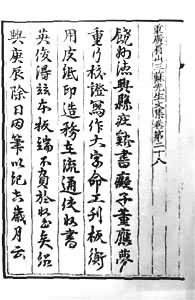 重廣眉山三蘇先生文集卷第二十八
饒州德興縣莊谿書癡子董應夢
重行校證寫作大字命工刊板衡
用皮紙印造務在流通使收書
英俊得茲本板端不負於收書矣紹
興庚辰除日因筆以記歲月云